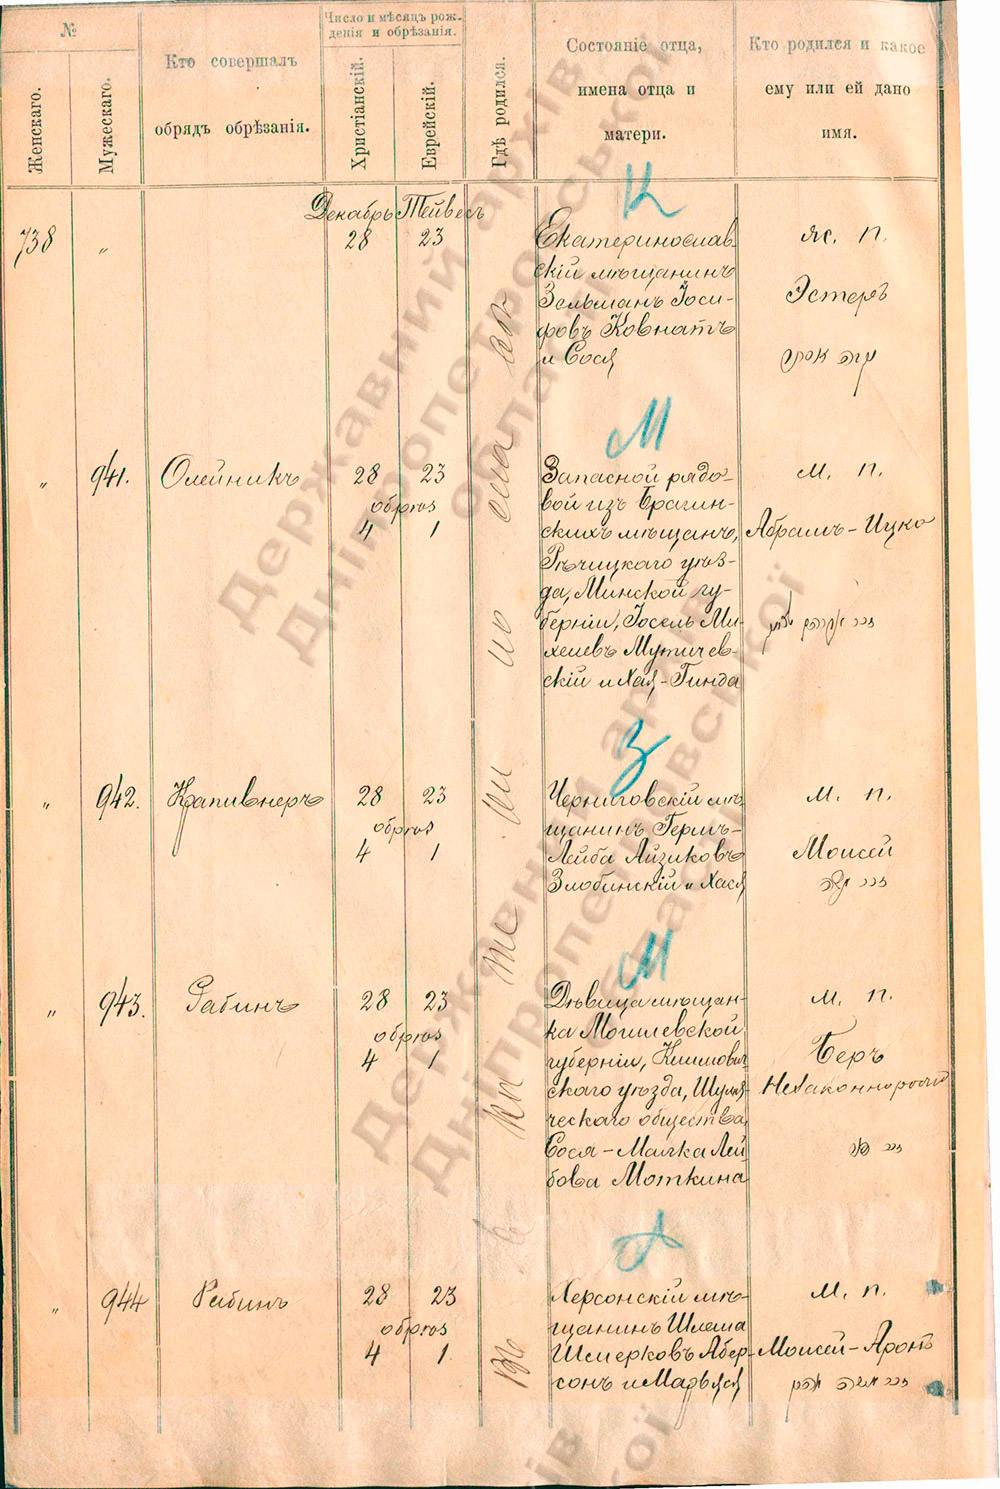 №
Женскаго.
Мужескаго.
Кто совершалъ
обрядъ обрѣзанія.
Число и мѣсяцъ рож-
денія и обрѣзанія.
Христіанскій.
Еврейскій.
Гдѣ родился.
Состояніе отца,
имена отца и
матери.
Кто родился и какое
ему или ей дано
имя.
Декабрь Тейвесъ
К
738 „ 28 23
Екатеринослав-
скій мѣщанинъ
Зельманъ Іоси-
фовъ Ковнатъ
и Сося
ж. п.
Эстеръ
М
„ 941. Олейникъ 28 23
обрѣз
4 1
Запасной рядо-
вой изъ Брагин-
скихъ мѣщанъ,
Рѣчицкаго уѣз-
да, Минской гу-
берніи, Іосель Ми-
хелевъ Мутичев-
скій и Хая-Гинда
м. п.
Абрамъ-Ицко
זכר אברהם יצחק
З
„ 942. Крапивнеръ 28 23
обрѣз
4 1
Черниговскій мѣ-
щанинъ Герш-
Лейба Айзиковъ
Злобинскій и Хася
м. п.
Моисей
זכר משה
М
„ 943. Рабинъ 28 23
обрѣз
4 1
Дѣвица мѣщан-
ка Могилевской
губерніи, Климович-
скаго уѣзда, Шумя-
ческаго общества,
Сося-Малка Лей-
бова Моткина
м. п.
Беръ
Незаконнорожд
זכר בער
А
„ 944 Рабинъ 28 23
обрѣз
4 1.
Херсонскій мѣ-
щанинъ Шлема
Шмерковъ Абер-
сонъ и Марьяся
м. п.
Моисей-Аронъ
זכר משה אהרן
Державний архів
Дніпропетровської
області
Державний архів
Дніпропетровської
області